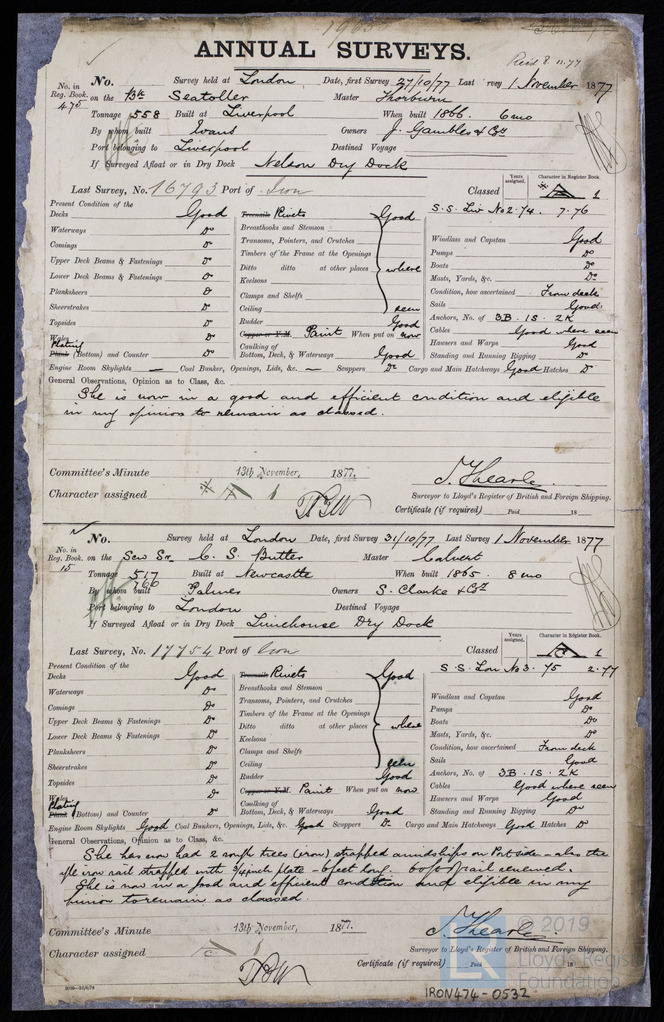 ANNUAL SURVEYS.
Recd 8.11.77
No. Survey held at London Date, first Survey 27/10/77 Last vey 1 November 1877
No. in
Reg. Book.
475
on the Bk Seatoller Master Thorburn
Tonnage 558 Built at Liverpool When built 1866. 6 mo
By whom built Evans Owners J. Gambles & Co
Port belonging to Liverpool Destined Voyage
If Surveyed Afloat or in Dry Dock Nelson Dry Dock
Last Survey, No. 16793 Port of Iron
Years assigned.
Character in Register Book.
Classed 1
S.S. Liv No 2. 74. 7.76
Present Condition of the
Decks Good
Waterways Do
Comings Do
Upper Deck Beams & Fastenings Do
Lower Deck Beams & Fastenings Do
Planksheers Do
Sheerstrakes Do
Topsides Do
Wales
Plating
Plank (Bottom) and Counter Do
Treenails Rivets Good
Breasthooks and Stemson
Transoms, Pointers, and Crutches
Timbers of the Frame at the Openings
Ditto ditto at other places where
Keelsons
Clamps and Shelfs
Ceiling seen
Rudder Good
Copper or Y.M. Paint When put on now
Caulking of
Bottom, Deck, & Waterways Good
Windlass and Capstan Good
Pumps Do
Boats Do
Masts, Yards, &c. Do
Condition, how ascertained From deck
Sails Good
Anchors, No. of 3B. 1S. 2K
Cables Good where seen
Hawsers and Warps Good
Standing and Running Rigging Do
Engine Room Skylights — Coal Bunker, Openings, Lids, &c. — Scuppers Do Cargo and Main Hatchways Good Hatches Do
General Observations, Opinion as to Class, &c.
She is now in a good and efficient condition and eligible
in my opinion to remain as classed.
Committee's Minute 13th November, 1877.
Character assigned
J. Thearle.
Surveyor to Lloyd's Register of British and Foreign Shipping.
Certificate (if required) Paid 18
No. Survey held at London Date, first Survey 31/10/77 Last Survey 1 November 1877
No. in
Reg. Book.
15
on the Scw Sr C. S. Butler Master Calvert
Tonnage 517 Built at Newcastle When built 1865. 8 mo
766
By whom built Palmer Owners S. Clarke & Co
Port belonging to London Destined Voyage
If Surveyed Afloat or in Dry Dock Limehouse Dry Dock
Last Survey, No. 17754 Port of Iron
Years assigned.
Character in Register Book.
Classed 1
S.S. Lon No 3. 75 2.77
Present Condition of the
Decks Good
Waterways Do
Comings Do
Upper Deck Beams & Fastenings Do
Lower Deck Beams & Fastenings Do
Planksheers Do
Sheerstrakes Do
Topsides Do
Wales Do
Plating
Plank (Bottom) and Counter Do
Treenails Rivets Good
Breasthooks and Stemson
Transoms, Pointers, and Crutches
Timbers of the Frame at the Openings
Ditto ditto at other places where
Keelsons
Clamps and Shelfs
Ceiling seen
Rudder Good
Copper or Y.M. Paint When put on now
Caulking of
Bottom, Deck, & Waterways Good
Windlass and Capstan Good
Pumps Do
Boats Do
Masts, Yards, &c. Do
Condition, how ascertained From deck
Sails Good
Anchors, No. of 3B. 1S. 2K
Cables Good where seen
Hawsers and Warps Good
Standing and Running Rigging Do
Engine Room Skylights Good Coal Bunkers, Openings, Lids, &c. Good Scuppers Do Cargo and Main Hatchways Good Hatches Do
General Observations, Opinion as to Class, &c.
She has now had 2 rough trees (iron) strapped amidships on Port side - also the
iron rail strapped with 3/4 inch plate - 6 feet long. of rail renewed.
She is now in a good and efficient condition and eligible in my
pinion to remain as classed.
Committee's Minute 13th November, 1877.
Character assigned
J. Thearle.
Surveyor to Lloyd's Register of British and Foreign Shipping.
Certificate (if required) Paid 18
© 2019
Lloyd's Regist
Foundation
IRON474-0532